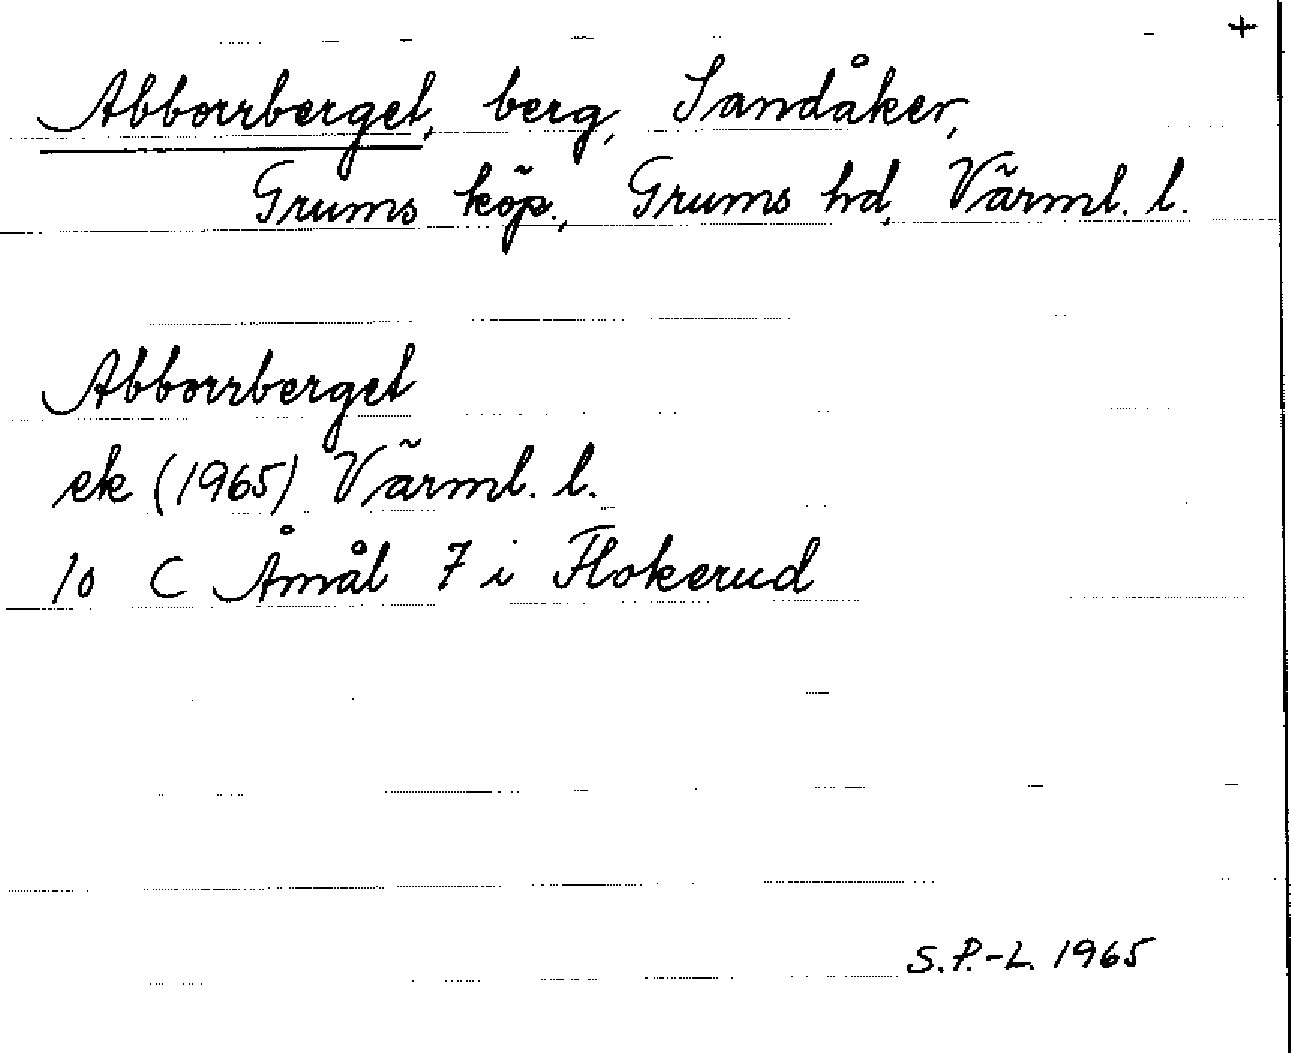 +
Abborrberget, berg, Sandåker,
Grums köp., Grums hd, Värml. l.
Abborrberget
ek (1965) Värml. l.
10 C Åmål 7 i Flokerud
S.P.-L. 1965